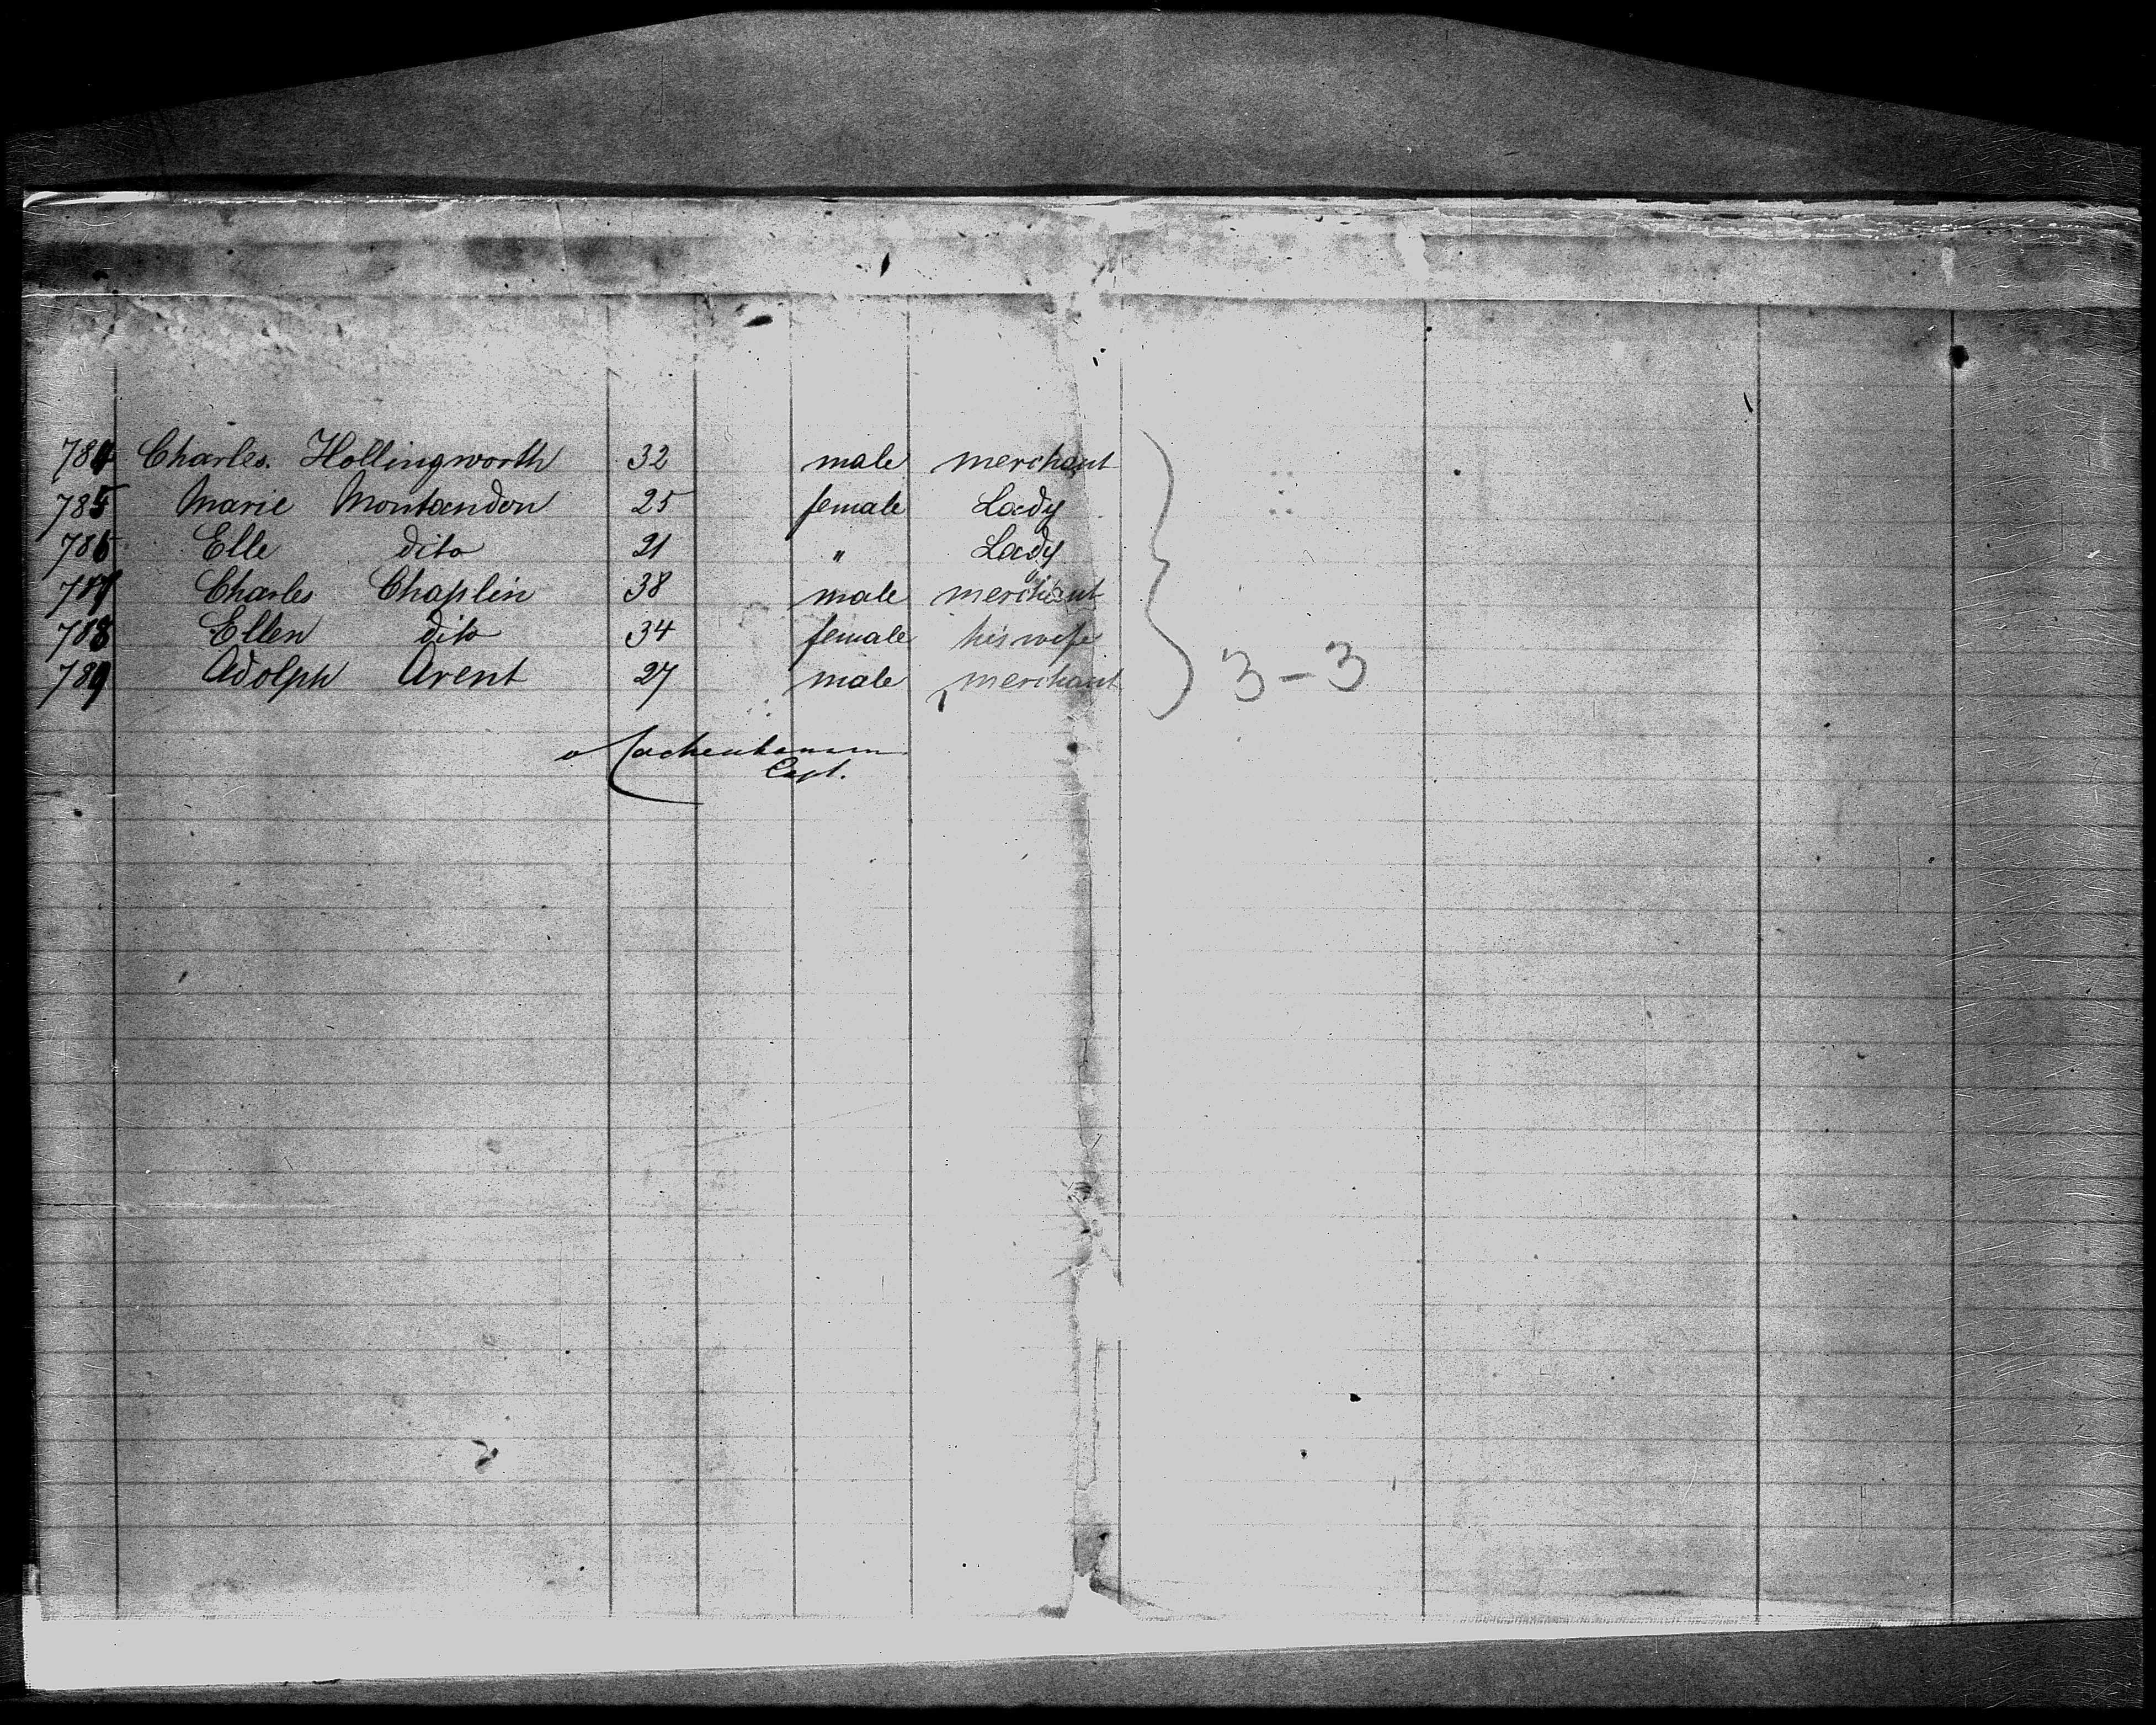 784 Charles. Hollingworth 32 male merchant
785 Marie Montandon 25 female Lady
786 Elle dito 21 " Lady
787 Charles Chaplin 38 male merchant
788 Ellen dito 34 female his wife
789 Adolph Arent 27 male merchant
3-3
Capt.